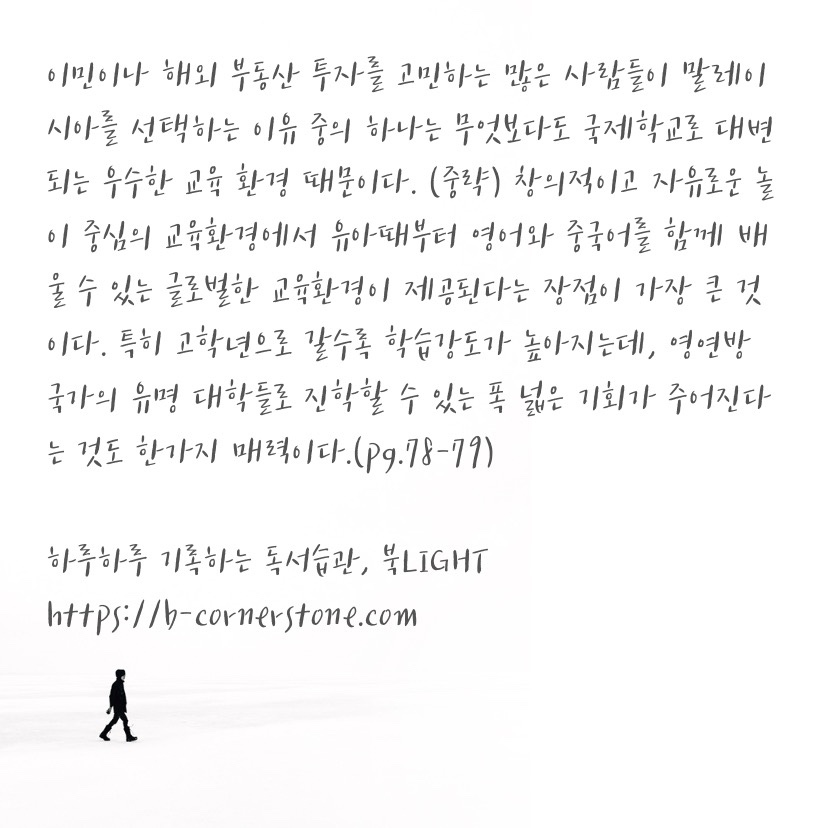 이민이나 해외 부동산 투자를 고민하는 많은 사람들이 말레이
시아를 선택하는 이유 중의 하나는 무엇보다도 국제학교로 대변
되는 우수한 교육 환경 때문이다. (중략) 창의적이고 자유로운 놀
이 중심의 교육환경에서 유아때부터 영어와 중국어를 함께 배
울 수 있는 글로벌한 교육환경이 제공된다는 장점이 가장 큰 것
이다. 특히 고학년으로 갈수록 학습강도가 높아지는데, 영연방
국가의 유명 대학들로 진학할 수 있는 폭 넓은 기회가 주어진다
는 것도 한가지 매력이다.(pg.78-79)
하루하루 기록하는 독서습관, 북LIGHT
https://b-cornerstone.com